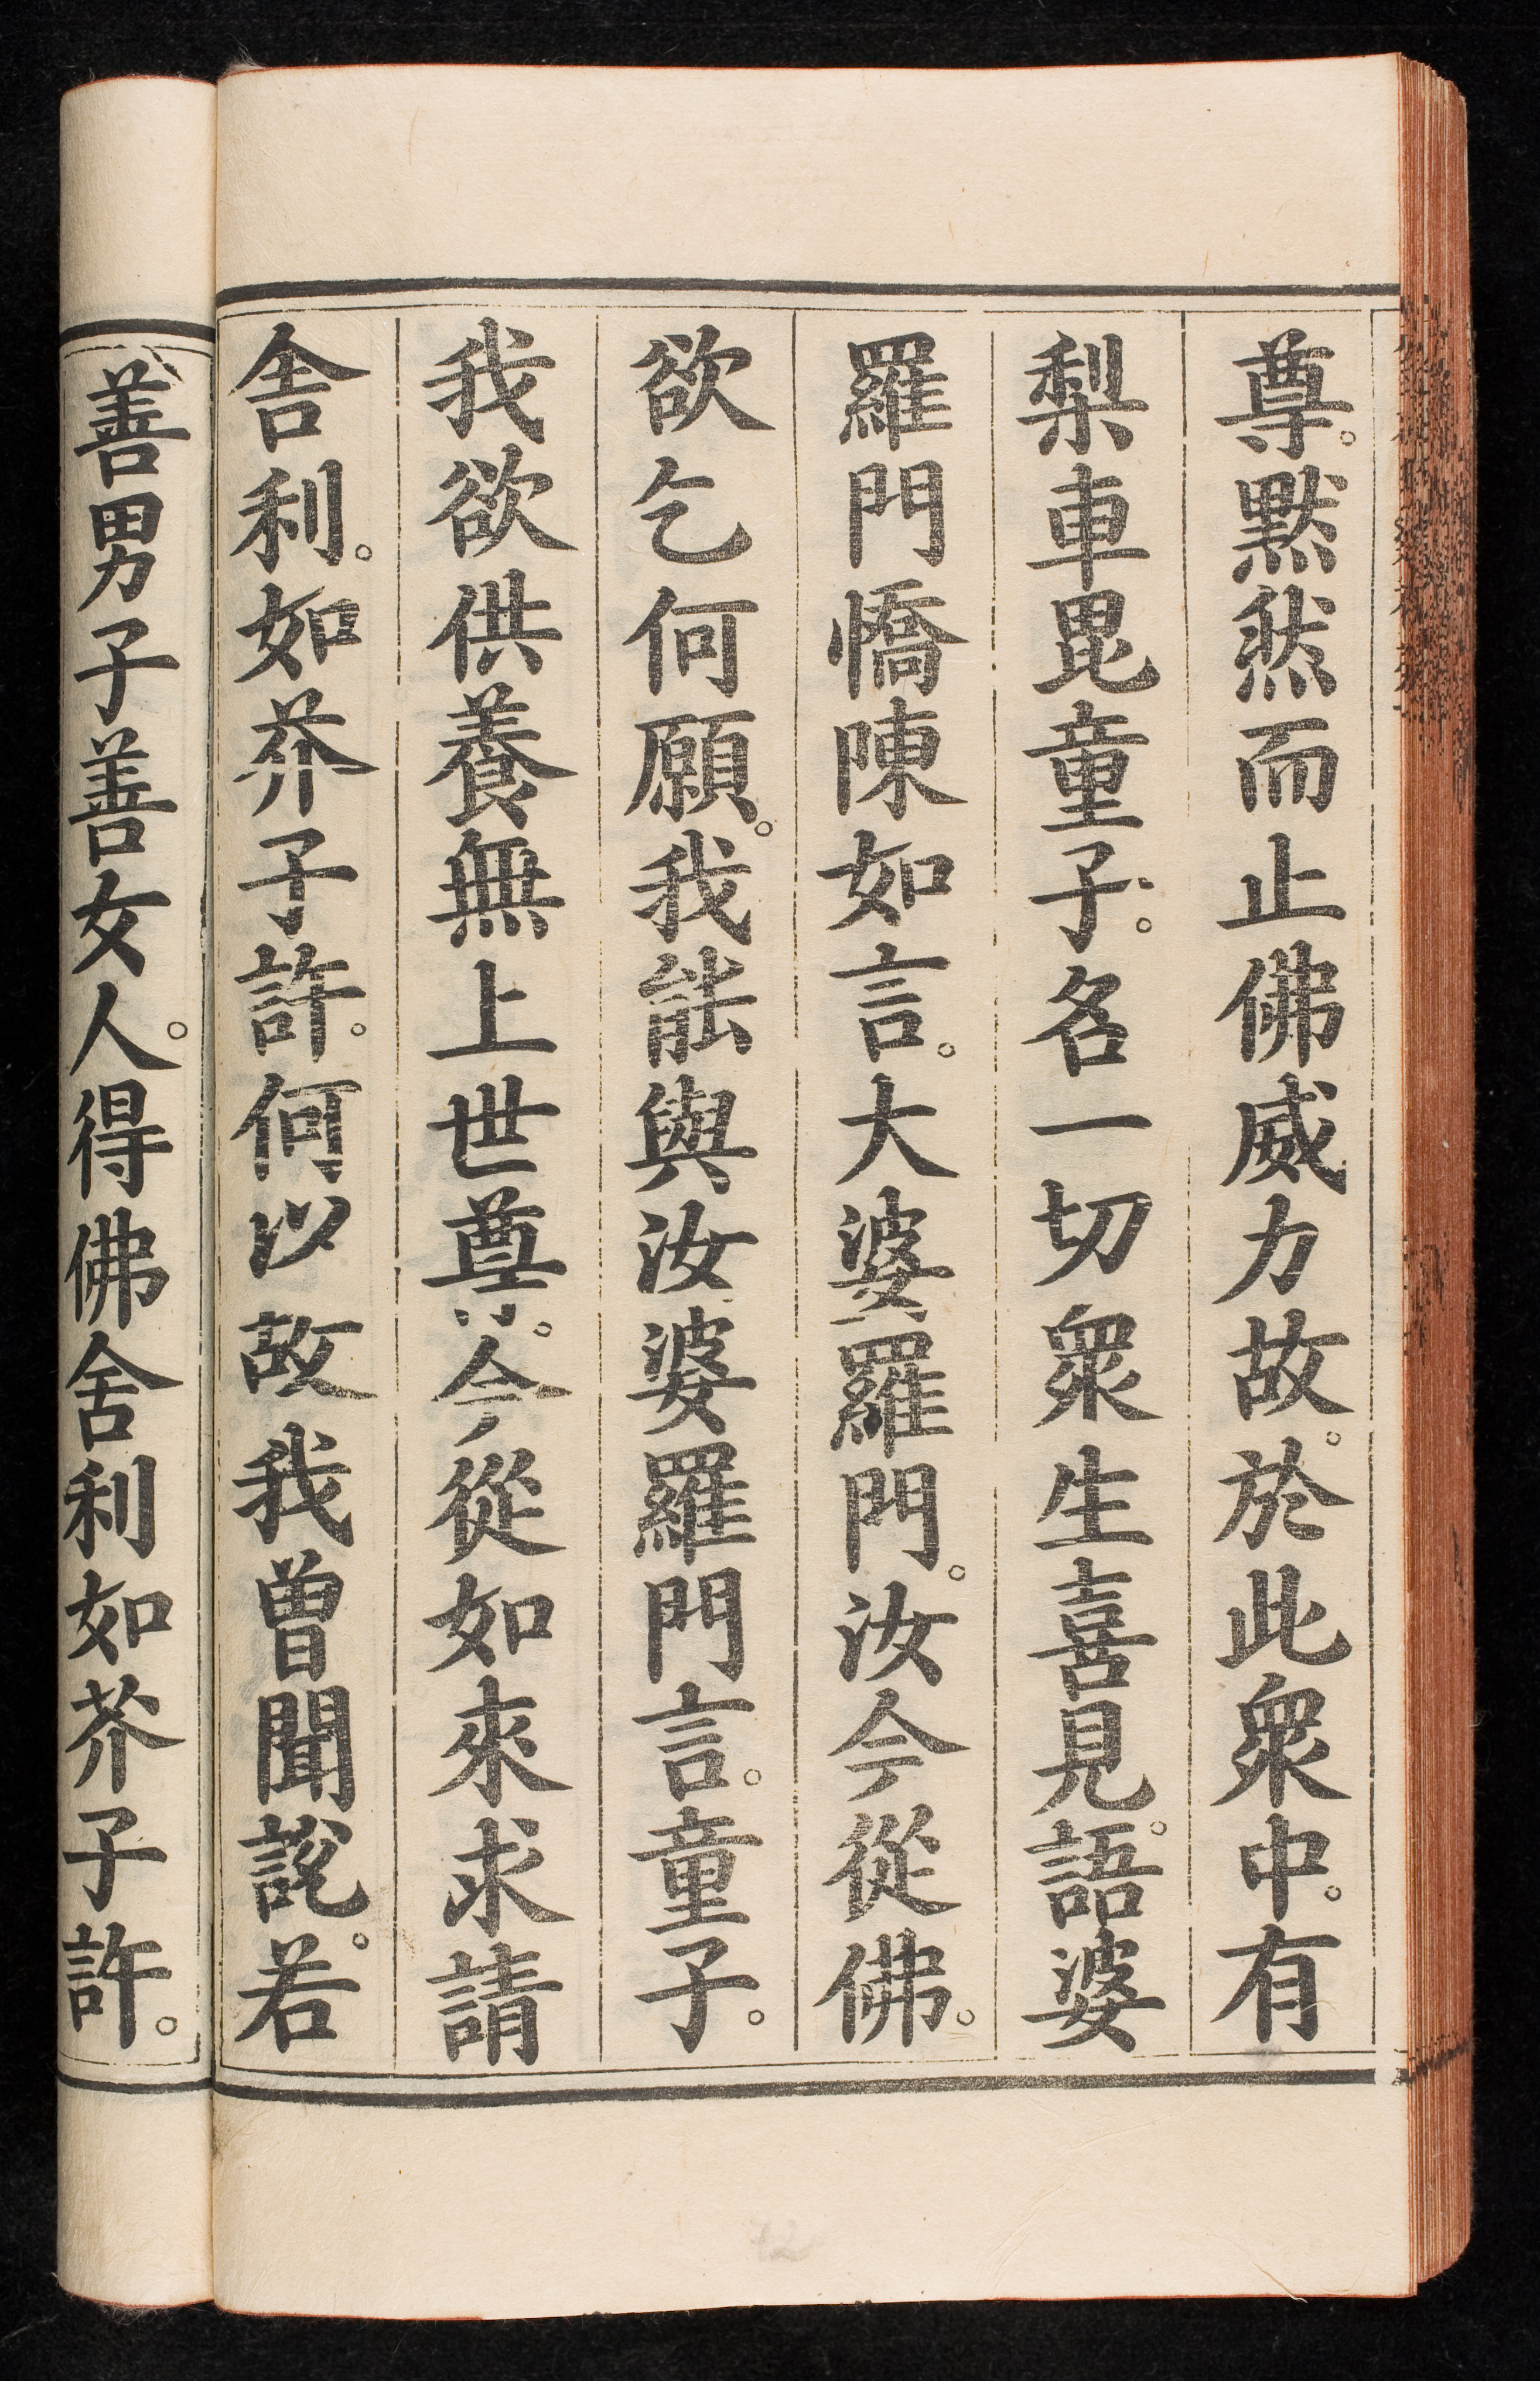 尊。黙然而止佛威力故。於此衆中。有
梨車毘童子。名一切衆生喜見。語婆
羅門憍陳如言。大婆羅門。汝今從佛。
欲乞何願。我能與汝婆羅門言。童子。
我欲供養無上世尊。今從如來求請
舍利。如芥子許。何以故我曾聞説。若
善男子善女人。得佛舍利如芥子許。